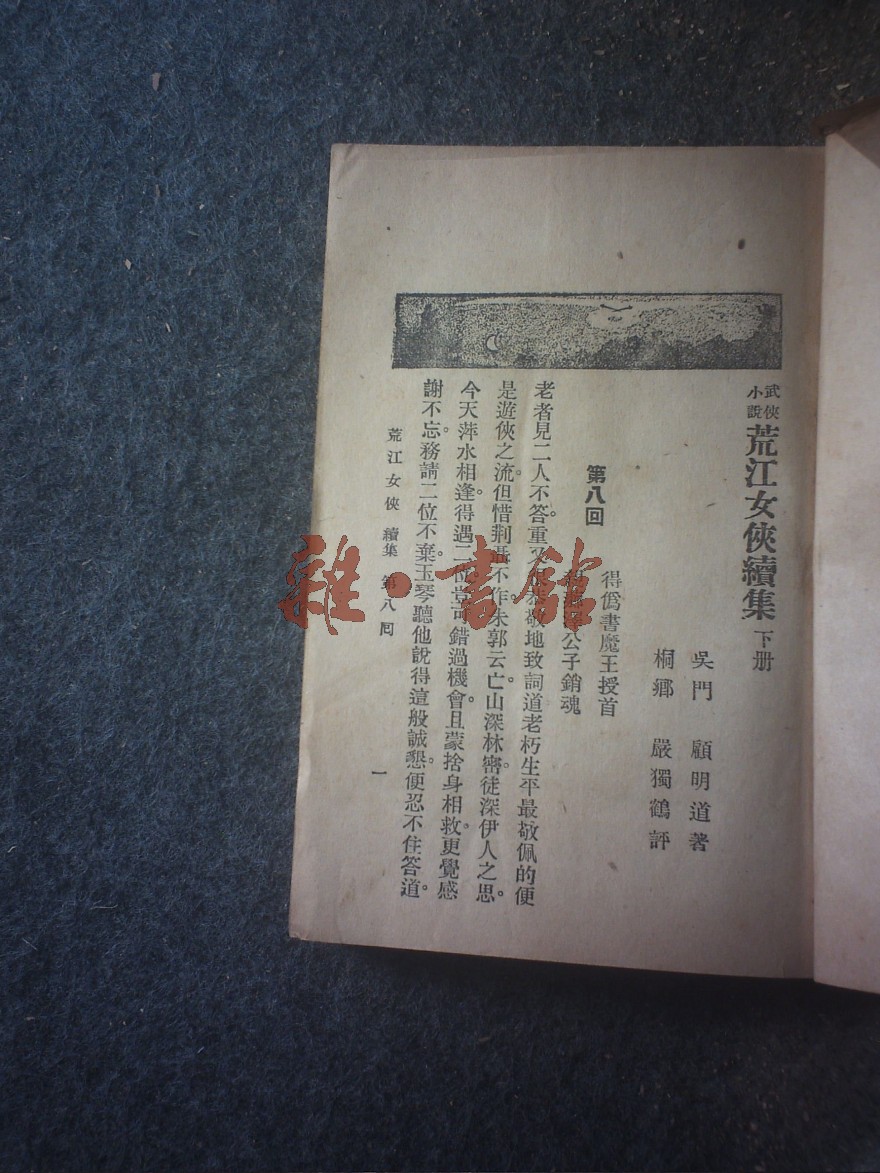 武俠小說 荒江女俠續集 下册
吳門 顧明道著
桐鄉 嚴獨鶴評
第八回
得僞書魔王授首
公子銷魂
老者見二人不答。重又很恭敬地致詞道老朽生平最敬佩的便
是遊俠之流。但惜荆聶不作。朱郭云亡。山深林密。徒深伊人之思。
今天萍水相逢。得遇二位。豈可錯過機會。且蒙捨身相救。更覺感
謝不忘。務請二位不棄。玉琴聽他說得這般誠懇。便忍不住答道。
荒江女俠 續集 第八囘
一
雜·書館